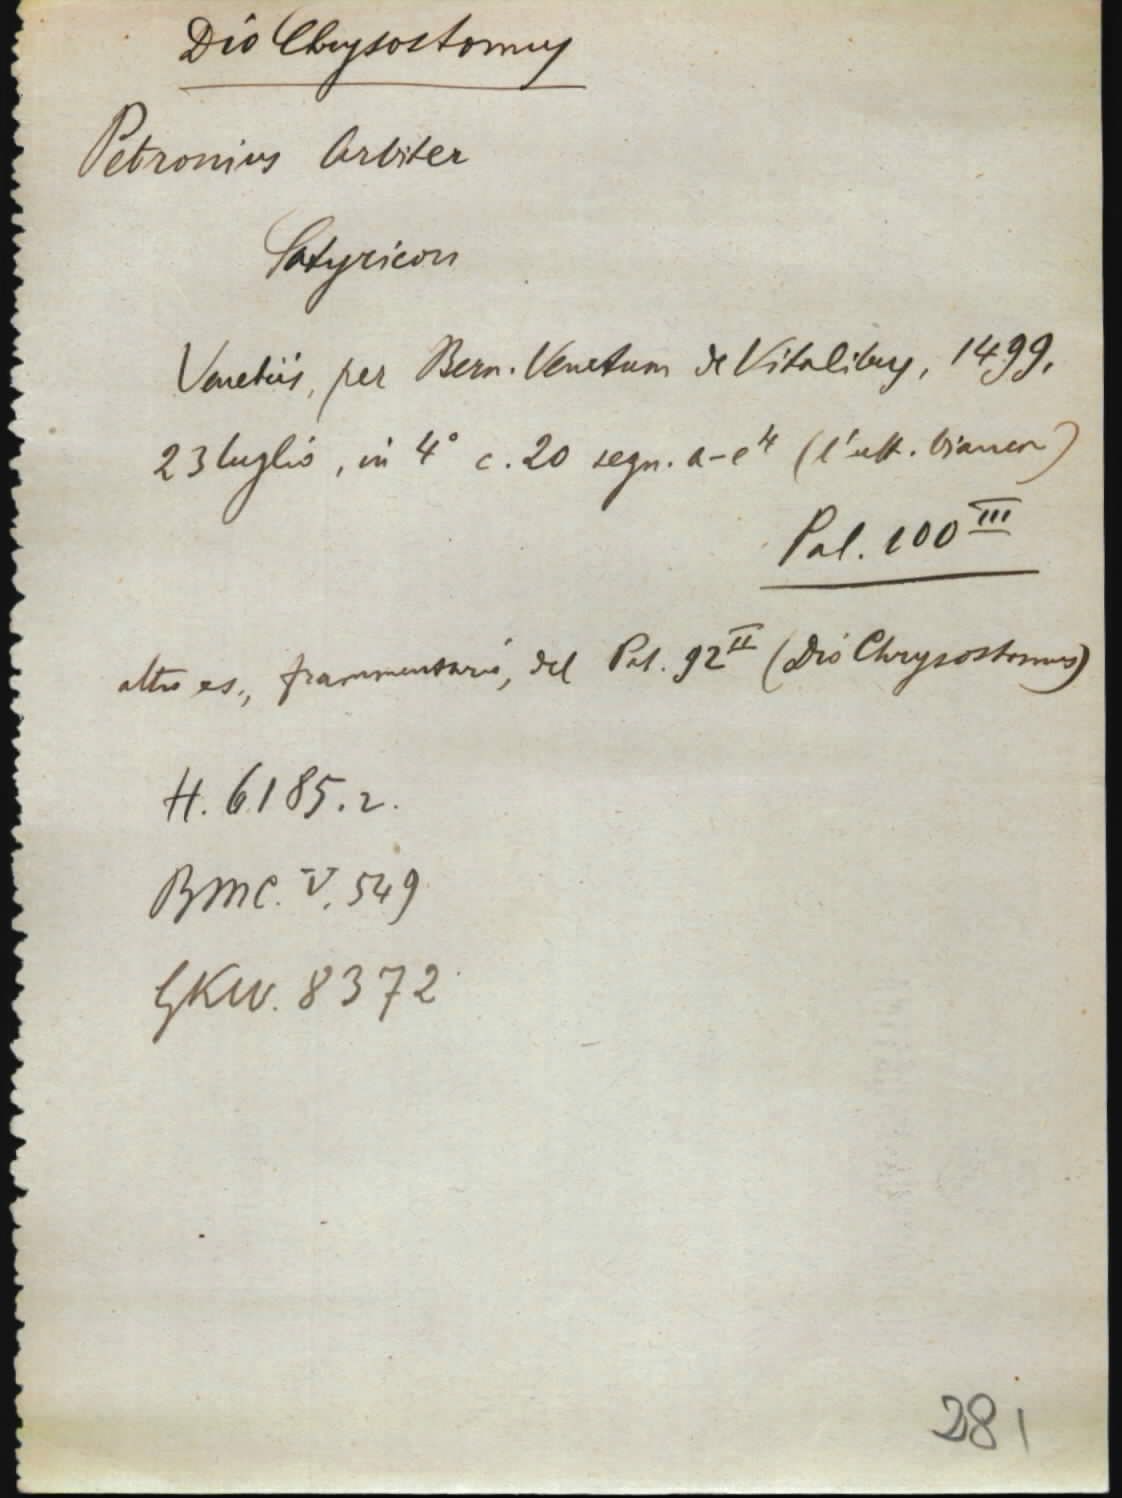 Dio Chrysostomus
Petronius Arbiter
Satyricon
Venetiis, per Bern. Venetum de Vitalibus, 1499,
23 luglio, in 4° c. 20 segn. a-e⁴ (l'ult. bianca)
Pal. 100 III
altro es., frammentario, del Pal. 92 II (Dio Chrysostomus)
H. 6185.2.
BMC. V. 549
GKW. 8372
281